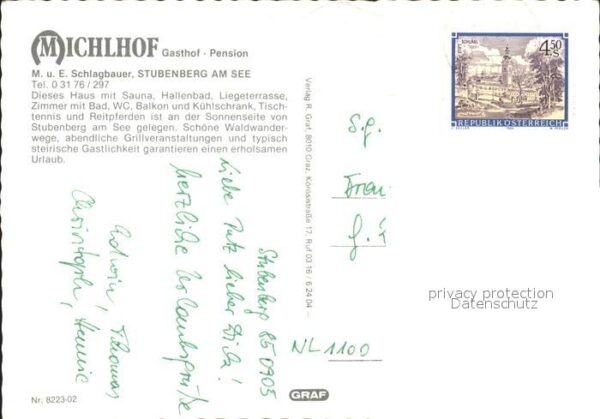 MICHLHOF Gasthof · Pension
M. u. E. Schlagbauer, STUBENBERG AM SEE
Tel. 0 31 76 / 297
Dieses Haus mit Sauna, Hallenbad, Liegeterrasse,
Zimmer mit Bad, WC, Balkon und Kühlschrank, Tisch-
tennis und Reitpferden ist an der Sonnenseite von
Stubenberg am See gelegen. Schöne Waldwander-
wege, abendliche Grillveranstaltungen und typisch
steirische Gastlichkeit garantieren einen erholsamen
Urlaub.
Stubenberg 850905
Liebe Putz lieber Dicka!
herzliche Urlaubsgrüße
Thomas
Christoph,
Verlag R. Graf, 8010 Graz, Körösistraße 17, Ruf 03 16 / 6 24 04 –
4.50 S
REPUBLIK ÖSTERREICH
Sg.
NL 1100
privacy protection
Datenschutz
Nr. 8223-02
GRAF